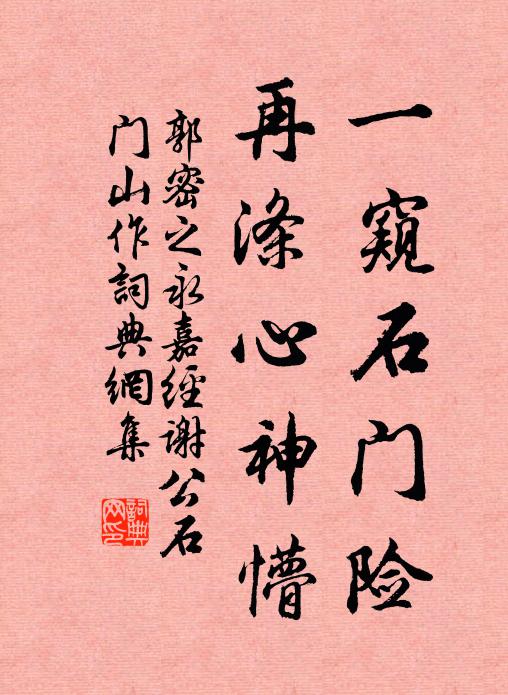 一窥石门险
再涤心神懵
郭密之永嘉經谢公石
门山作詞典網集
詞典网印